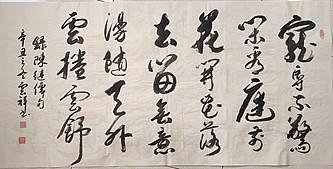 寵辱不驚
閑看庭前
花開花落
去留無意
漫隨天外
雲捲雲舒
錄陳繼儒句
辛丑之冬雲祥書